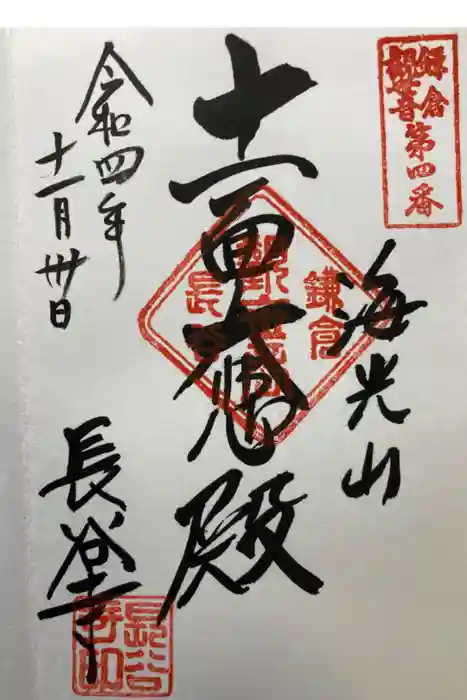 鎌倉
観世音第四番
海光山
十一面大悲殿
鎌倉
令和四年
十一月卅日
長谷寺
長谷寺印